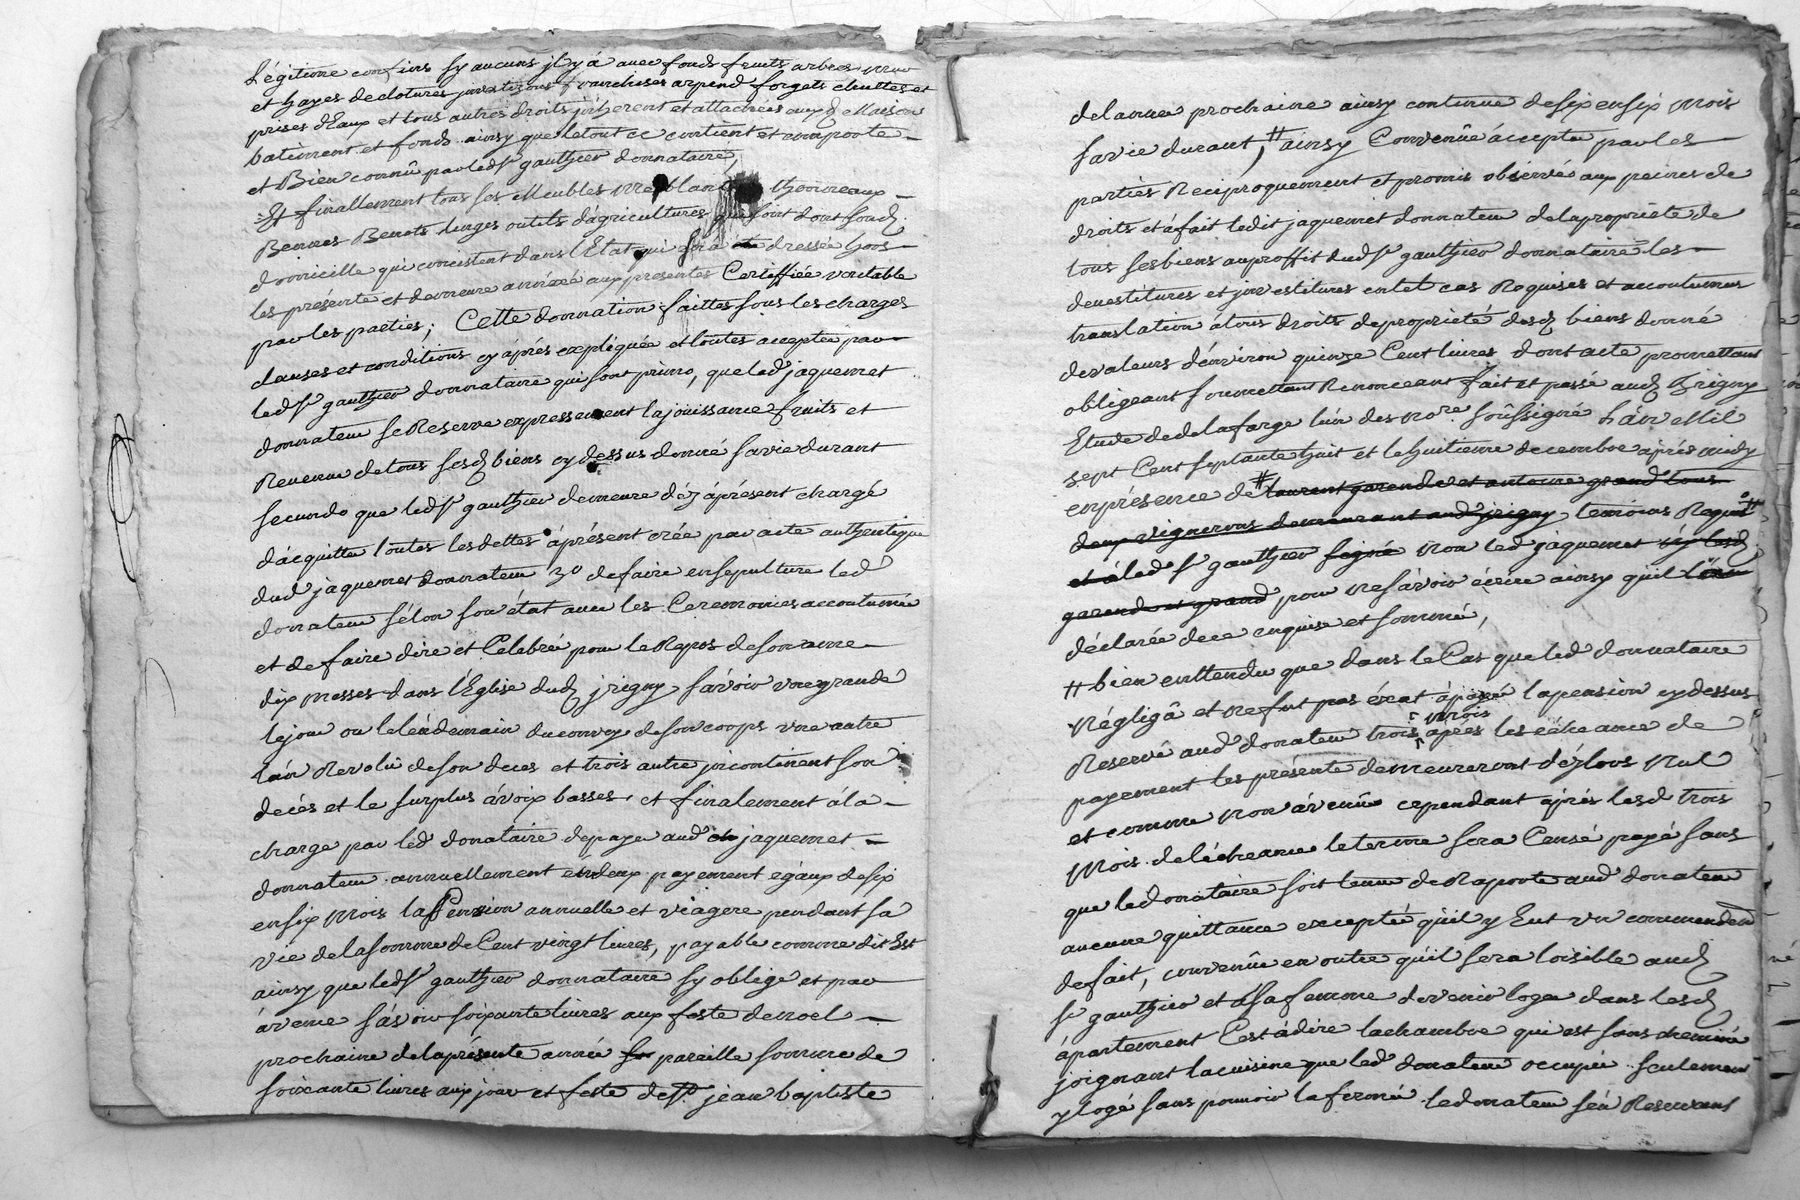 Légitime confins sy aucuns jl y á avec fonds fruits arbres
et hayes de clotures jnvestizons franchises arpend forgets chuttes et
prises d'Eaux et tous autres droits jnherent et attachées aux d maison
batiment et fonds ainsy que le tout ce contient et comporte
et Bien connû par led sr gauthier donnataire,
Et finallement tous ses Meubles thonneaux
Bennes Benots linges outils d'agricultures qui sont dont sond
domicille qui concistent dans l'Etat qui sera dressée hors
les présente et demeure annéxé aux presentes Certiffiée veritable
par les parties; Cette donnation faittes sous les charges
clauses et conditions cy aprés expliquée et toutes acceptée par
led sr gauthier donnataire qui sont primo, que led jaquemet
donnateur se Reserve expressement la joüissance fruits et
Revenu de tous sesd biens cy dessus donné sa vie durant
secundo que led sr gauthier demeure déz áprésent chargé
d'acquitter toutes les dettes áprésent crée par acte authentique
dud jaquemet donnateur 3o de faire ensepulture led
donnateur sélon son état avec les Ceremonies accoutumée
et de faire dire et Celebré pour le Repos de son ame
dix messes dans l'Eglise dud jrigny sávoir une grande
le jour ou le lendemain du convoy de son corps une autre
l'án Revolû de son deces et trois autre jncontinent son
decés et le surplus á voix basses, et finalement á la
charge par led donataire de payer aud jaquemet
donnateur annuellement en deux payement égaux de six
en six mois la Pension annuelle et viagere pendant sa
vie de la somme de Cent vingt livres, payable comme dit Est
ainsy que led sr gauthier donnataire sy oblige et par
ávance sávoir soixante livres aux feste de noel
prochaine de la présente année pareille somme de
soixante livres aux jour et feste de St jean baptiste
de lanne prochaine ainsy continué de six en six mois
sa vie durant, # ainsy Convenûe áccepté par les
parties Reciproquement et promis observé aux peines de
droits et á fait ledit jaquemet donnateur de la proprieté de
tous ses biens au proffit dud sr gauthier donnataire les
devestitures et jnvestitures en tel cas Requises et accoutumés
translation á tous droits de proprieté desd biens donné
de valeurs d'environ quinze Cent livres dont acte promettant
obligeant soumettant Renonceant fait et passé aud jrigny
Etude de delafarge l'un des nore soûssigné l'án Mil
sept Cent septante huit et le huitieme decembre aprés midy
en présence de # laurent garende et antoine grand tous
deux vignerons demeurant aud jrigny temoins Requis #
et á led sr gauthier signé non led jaquemet ny lesd
garende et grand pour ne sávoir écrire ainsy qu'il l'ont
déclarée de ce enquise et sommé,
# bien enttendu que dans le Cas que led donnataire
négligâ et ne fut pas éxat á payé la pension cy dessus
Reservé aud donateur trois mois aprés les écheance de
payement les présente demeureront déz lors nul
et comme non ávenûe cependant aprés lesd trois
mois de l'écheance le terme sera Censé payé sans
que le donataire soit tenu de Raporte aud donateur
aucune quittance excepté qu'il y Eut un commandem
de fait, convenûe en outre qu'il sera loisible aud
sr gauthier et á sa femme de venir loger dans lesd
ápartement Cest á dire la chambre qui est sans cheminé
joignant la cuisine que led donateur occupée seulement
y logé sans pouvoir l'afermé le donateur sén Reservant